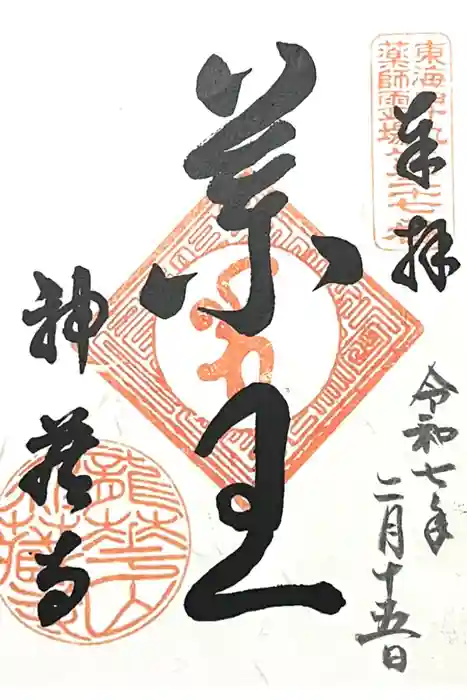 東海四十九
薬師霊場第三十七番
奉拝
令和七年
二月十五日
薬王
神蔵寺